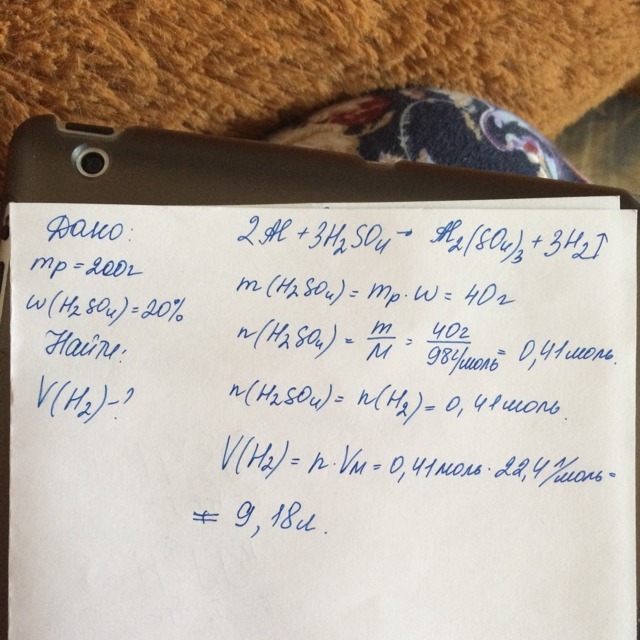 Дано:
mp = 200г
w(H₂SO₄) = 20%
Найти:
V(H₂) - ?
2Al + 3H₂SO₄ → Al₂(SO₄)₃ + 3H₂↑
m(H₂SO₄) = mp · w = 40г
n(H₂SO₄) = m/M = 40г/98г/моль = 0,41 моль.
n(H₂SO₄) = n(H₂) = 0,41 моль.
V(H₂) = n · Vм = 0,41 моль · 22,4 л/моль =
= 9,18л.